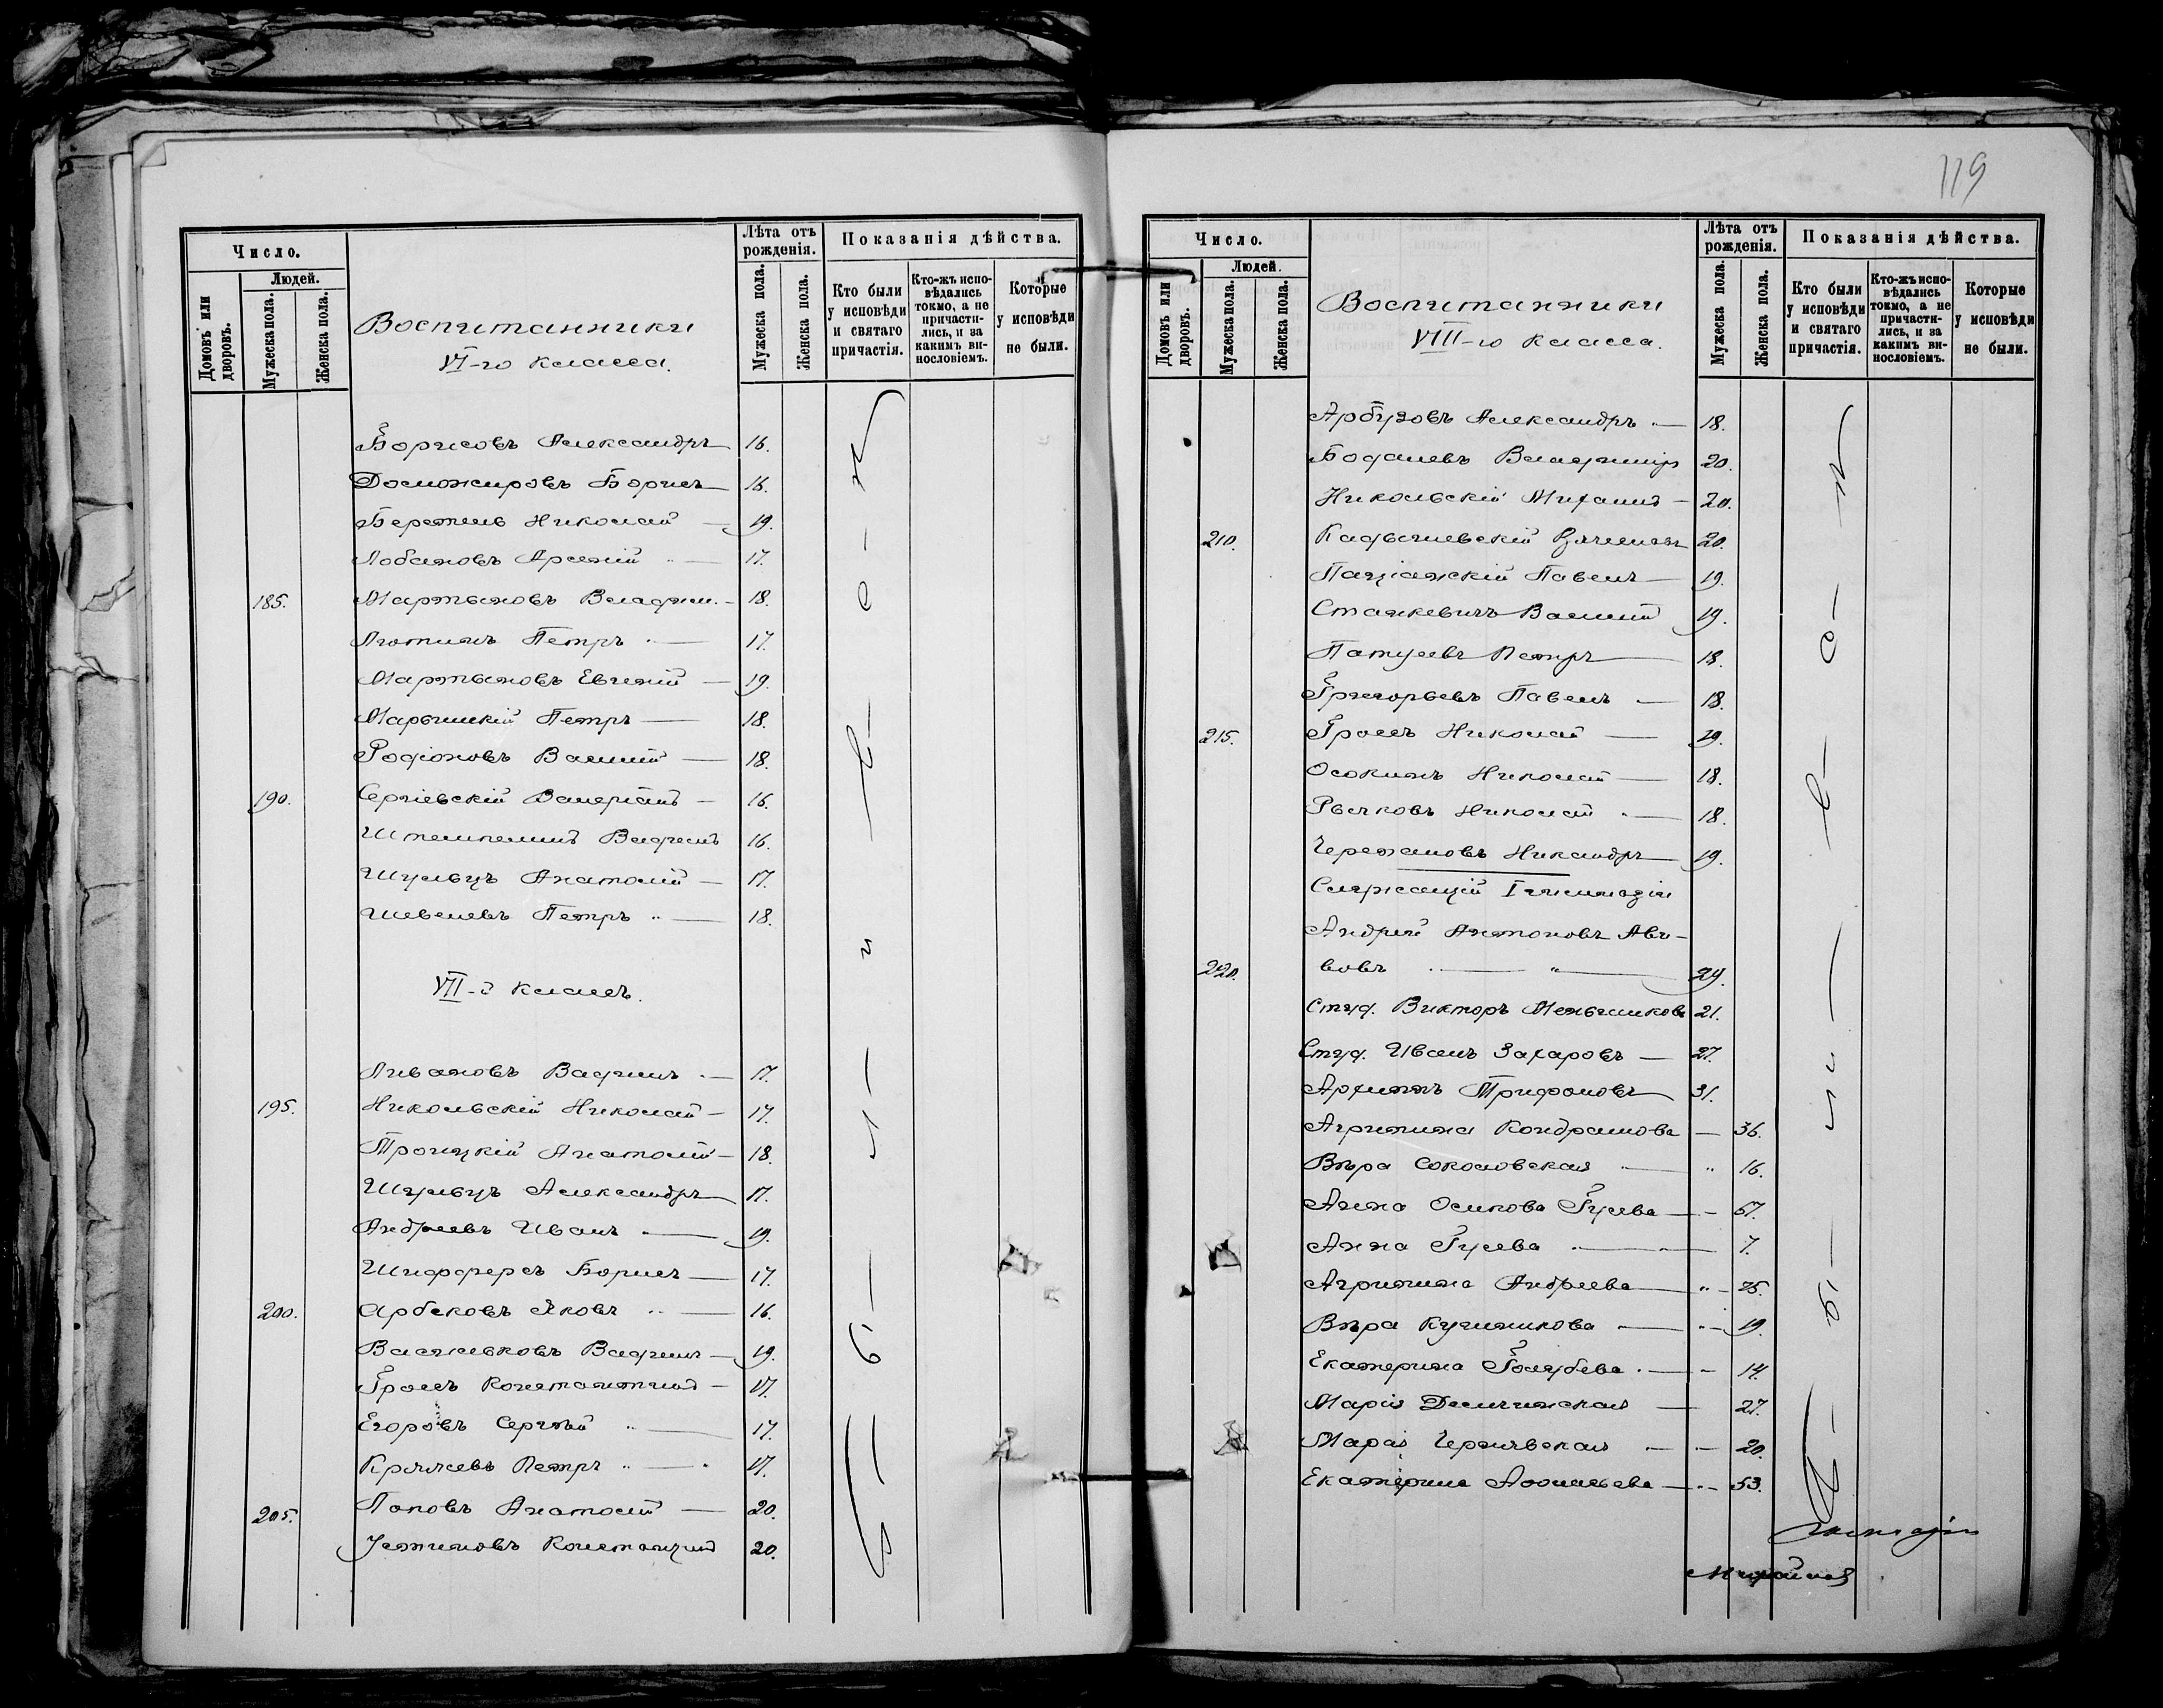 Число.
Людей.
Домовъ или дворовъ.
Мужеска пола.
Женска пола.
Воспитанники
VI-го класса.
Лѣта отъ рожденія.
Мужеска пола.
Женска пола.
Показанія дѣйства.
Кто были у исповѣди и святаго причастія.
Кто-жъ исповѣдались токмо, а не причастились, и за какимъ винословіемъ.
Которые у исповѣди не были.
Борисовъ Александръ 16.
Доможировъ Борисъ 16.
Николай 19.
Лобановъ Арсеній 17.
185. Мартыновъ Владим. 18.
Лютинъ Петръ 17.
Мартыновъ Евгеній 19.
Петръ 18.
Родіоновъ Василій 18.
190. Сергіевскій Валеріанъ 16.
16.
Шульцъ Анатолій 17.
Шевелевъ Петръ 18.
VII-й классъ.
Ливановъ Вадимъ 17.
195. Никольскій Николай 17.
Троицкій Анатолій 18.
Шульцъ Александръ 17.
Андреевъ Иванъ 19.
Шифферсъ Борисъ 17.
200. Арбековъ Яковъ 16.
Васильковъ 19.
Гроссъ Константинъ 17.
Егоровъ Сергѣй 17.
Петръ 17.
205. Поповъ Анатолій 20.
Устиновъ Константинъ 20.
119
Число.
Людей.
Домовъ или дворовъ.
Мужеска пола.
Женска пола.
Воспитанники
VIII-го класса.
Лѣта отъ рожденія.
Мужеска пола.
Женска пола.
Показанія дѣйства.
Кто были у исповѣди и святаго причастія.
Кто-жъ исповѣдались токмо, а не причастились, и за какимъ винословіемъ.
Которые у исповѣди не были.
Арбузовъ Александръ 18.
Владиміръ 20.
Никольскій Михаилъ 20.
210. Вячеславъ 20.
Павелъ 19.
Станкевичъ Василій 19.
Петръ 18.
Григорьевъ Павелъ 18.
215. Гроссъ Николай 19.
Осокинъ Николай 18.
Рычковъ Николай 18.
Черемановъ Никандръ 19.
Служащій I гимназіи
Андрей Антоновъ
220. 24.
Студ. Викторъ Меньшиковъ 21.
Студ. Иванъ Захаровъ 27.
Трифоновъ 31.
Агрипина Кондрашова 36.
Вѣра Соколовская 16.
Анна Осипова Гусева 57.
Анна Гусева 7.
Агрипина Андреева 25.
Вѣра 19.
Екатерина Голубева 14.
Марія 27.
Марія Чернявская 20.
Екатерина 53.